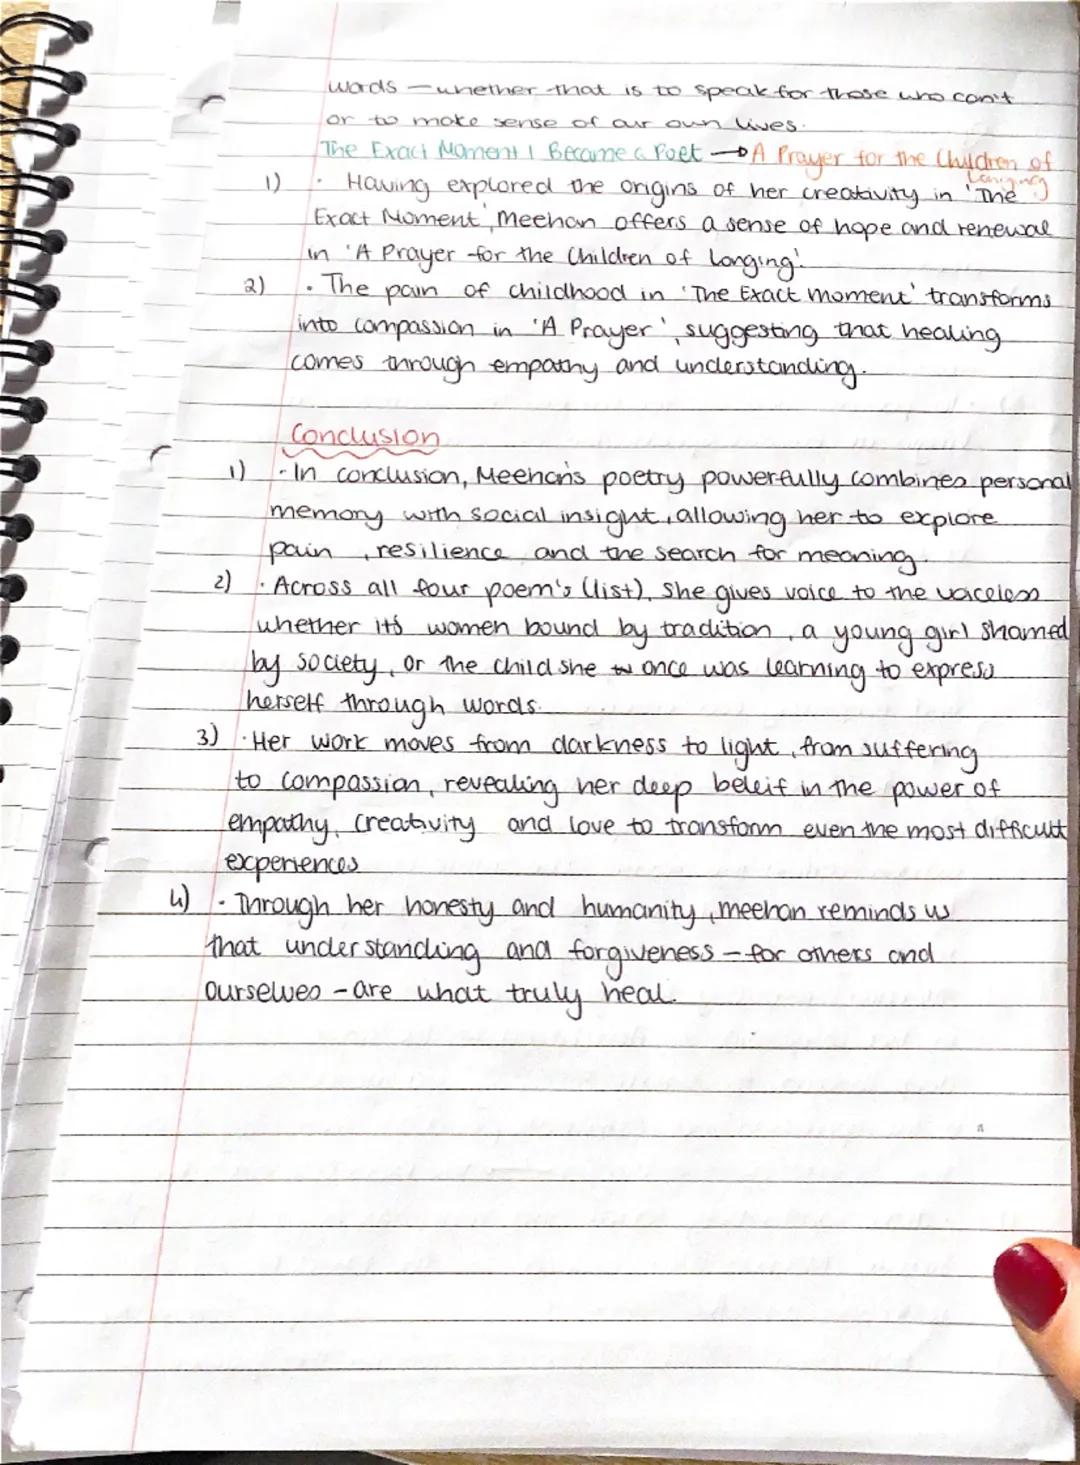 words – whether that is to speak for those who can't
or to make sense of our own lives.
The Exact Moment I Became a Poet → A Prayer for the Children of
Longing
1) · Having explored the origins of her creativity in 'The
Exact Moment', Meehan offers a sense of hope and renewal
in 'A Prayer for the Children of Longing'.
2) · The pain of childhood in 'The Exact Moment' transforms
into compassion in 'A Prayer', suggesting that healing
comes through empathy and understanding.
Conclusion
1) · In conclusion, Meehan's poetry powerfully combines personal
memory with social insight, allowing her to explore
pain, resilience and the search for meaning.
2) · Across all four poem's (list), She gives voice to the voiceless
whether its women bound by tradition, a young girl shamed
by society, or the child she once was learning to express
herself through words.
3) · Her work moves from darkness to light, from suffering
to compassion, revealing her deep beleif in the power of
empathy, creativity and love to transform even the most difficult
experiences
4) · Through her honesty and humanity, Meehan reminds us
that understanding and forgiveness – for others and
ourselves – are what truly heal.